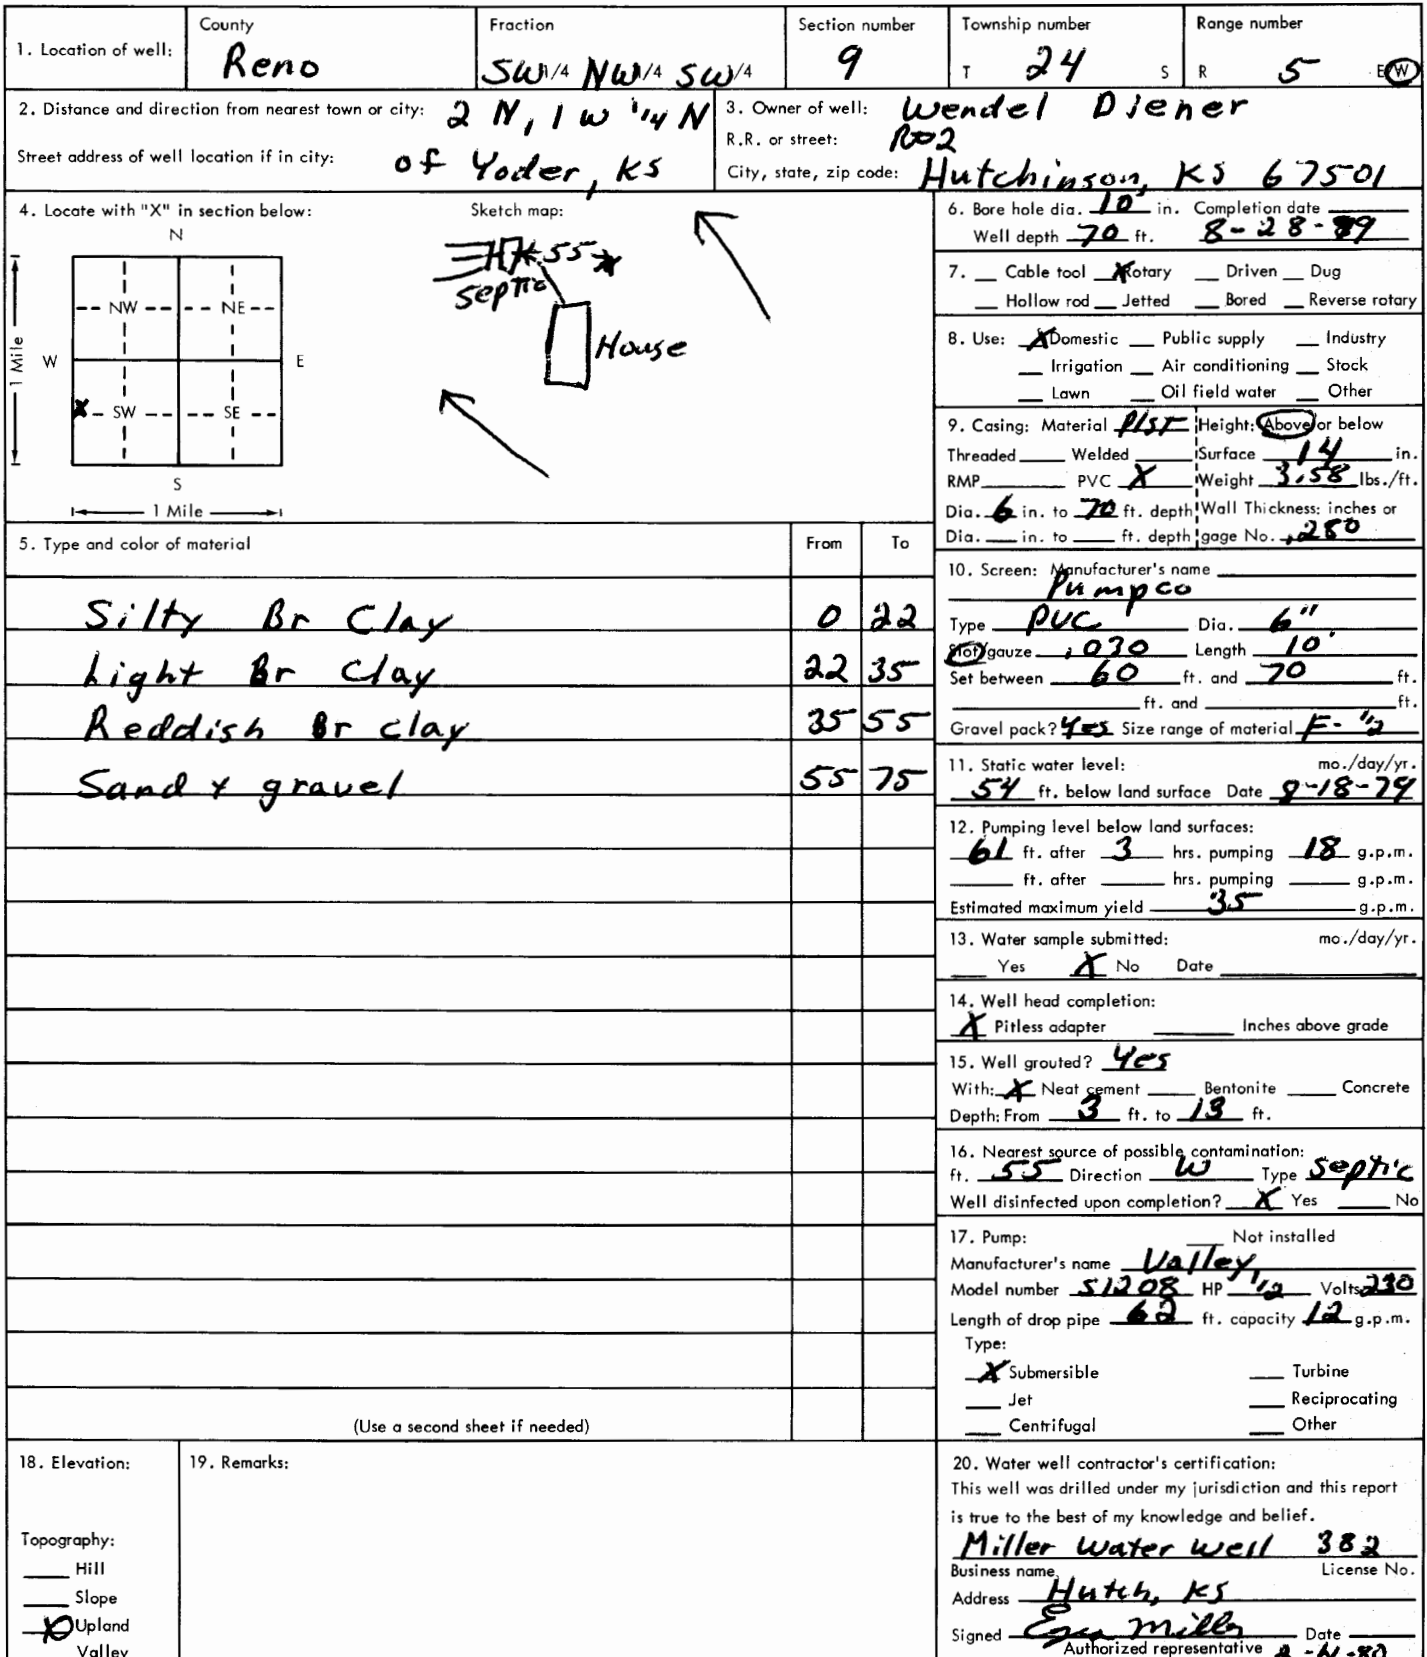 County
Fraction
Section number
Township number
Range number
1. Location of well:
Reno
SW 1/4 NW 1/4 SW 1/4
9
T 24 S
R 5 E W
2. Distance and direction from nearest town or city: 2 N, 1 W 1/4 N
Street address of well location if in city: of Yoder, KS
3. Owner of well: Wendel Diener
R.R. or street:
City, state, zip code: Hutchinson, KS 67501
4. Locate with "X" in section below:
Sketch map:
N
NW NE
W E
X SW SE
S
1 Mile
1 Mile
55 X
Septic
House
6. Bore hole dia. 10 in. Completion date
Well depth 70 ft. 8-28-79
7. Cable tool X Rotary Driven Dug
Hollow rod Jetted Bored Reverse rotary
8. Use: X Domestic Public supply Industry
Irrigation Air conditioning Stock
Lawn Oil field water Other
9. Casing: Material PlST Height: Above or below
Threaded Welded Surface 14 in.
RMP PVC X Weight 3.58 lbs./ft.
Dia. 6 in. to 70 ft. depth Wall Thickness: inches or
Dia. in. to ft. depth gage No. .280
5. Type and color of material From To
Silty Br Clay 0 22
Light Br Clay 22 35
Reddish Br clay 35 55
Sand + gravel 55 75
(Use a second sheet if needed)
10. Screen: Manufacturer's name
Pumpco
Type PVC Dia. 6"
Slot/gauze .030 Length 10'
Set between 60 ft. and 70 ft.
ft. and ft.
Gravel pack? Yes Size range of material F-1/2
11. Static water level: mo./day/yr.
54 ft. below land surface Date 8-18-79
12. Pumping level below land surfaces:
61 ft. after 3 hrs. pumping 18 g.p.m.
ft. after hrs. pumping g.p.m.
Estimated maximum yield 35 g.p.m.
13. Water sample submitted: mo./day/yr.
Yes X No Date
14. Well head completion:
X Pitless adapter Inches above grade
15. Well grouted? Yes
With: X Neat cement Bentonite Concrete
Depth: From 3 ft. to 13 ft.
16. Nearest source of possible contamination:
ft. 55 Direction W Type Septic
Well disinfected upon completion? X Yes No
17. Pump: Not installed
Manufacturer's name Valley
Model number S1208 HP 1/2 Volts 230
Length of drop pipe 62 ft. capacity 12 g.p.m.
Type:
X Submersible Turbine
Jet Reciprocating
Centrifugal Other
18. Elevation:
Topography:
Hill
Slope
X Upland
Valley
19. Remarks:
20. Water well contractor's certification:
This well was drilled under my jurisdiction and this report
is true to the best of my knowledge and belief.
Miller Water Well 382
Business name License No.
Address Hutch, KS
Signed Miller Date
Authorized representative